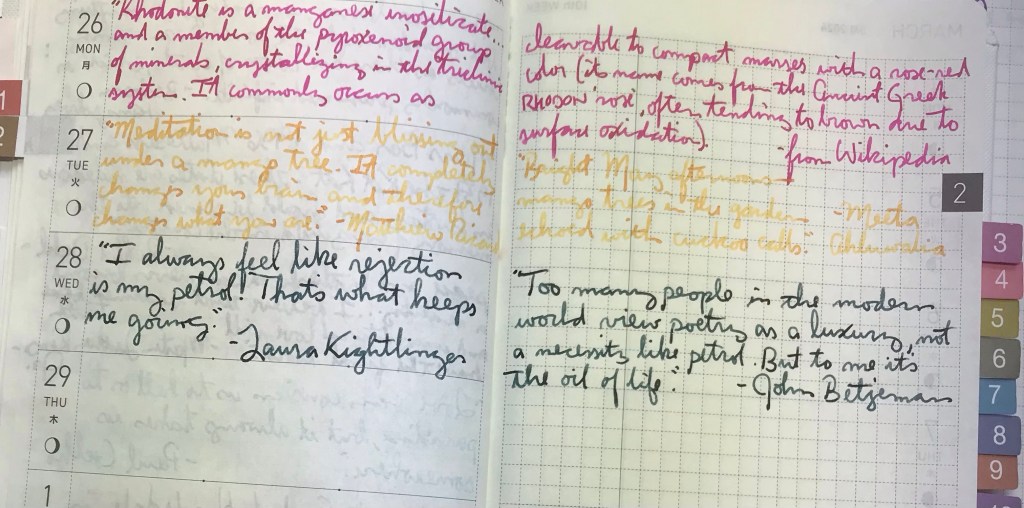 26
MON
月
"Rhodonite is a manganese inosilicate...
and a member of the pyroxenoid group
of minerals, crystallizing in the triclinic
system. It commonly occurs as
cleavable to compact masses with a rose-red
color (its name comes from the Ancient Greek
RHODON 'rose', often tending to brown due to
surface oxidation).
-from Wikipedia
27
TUE
火
"Meditation is not just blissing out
under a mango tree. It completely
changes your brain and therefore
changes what you are." -Matthieu Ricard
"Bright May afternoons
mango trees in the garden
echoed with cuckoo calls."
-Meeta
Ahluwalia
28
WED
水
"I always feel like rejection
is my petrol! Thats what keeps
me going."
-Laura Kightlinger
"Too many people in the modern
world view poetry as a luxury, not
a necessity like petrol. But to me its
the oil of life."
-John Betjeman
29
THU
木
1
1
2
2
3
4
5
6
7
8
9